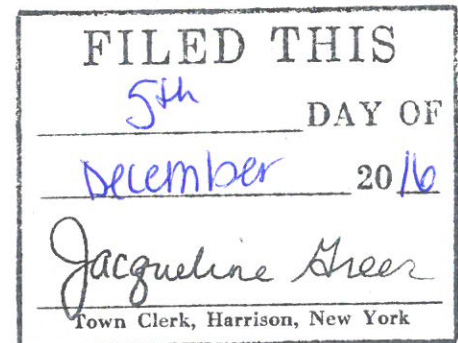 FILED THIS
5th DAY OF
December 2016
Jacqueline Greer
Town Clerk, Harrison, New York